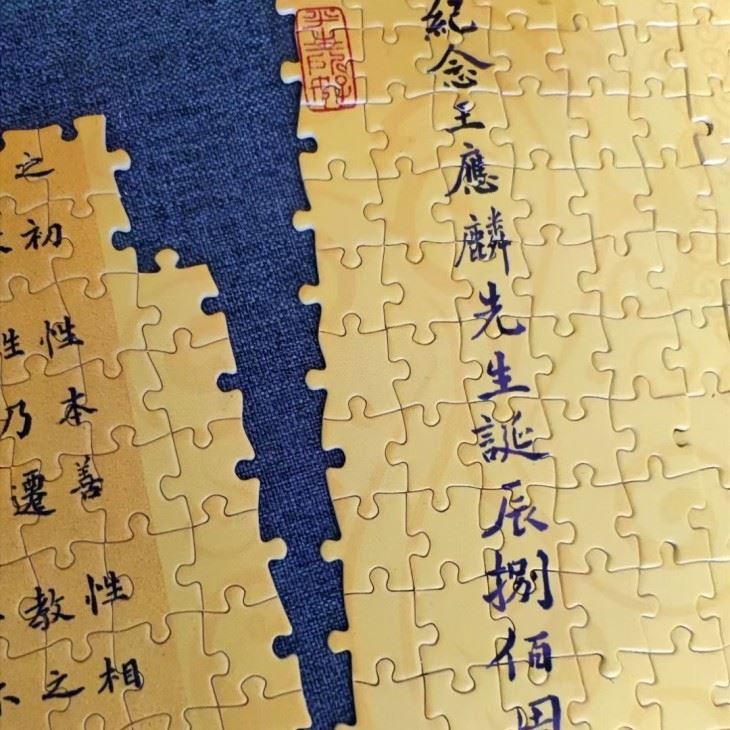 紀念王應麟先生誕辰捌佰周
之初性本善性相
性乃遷教之